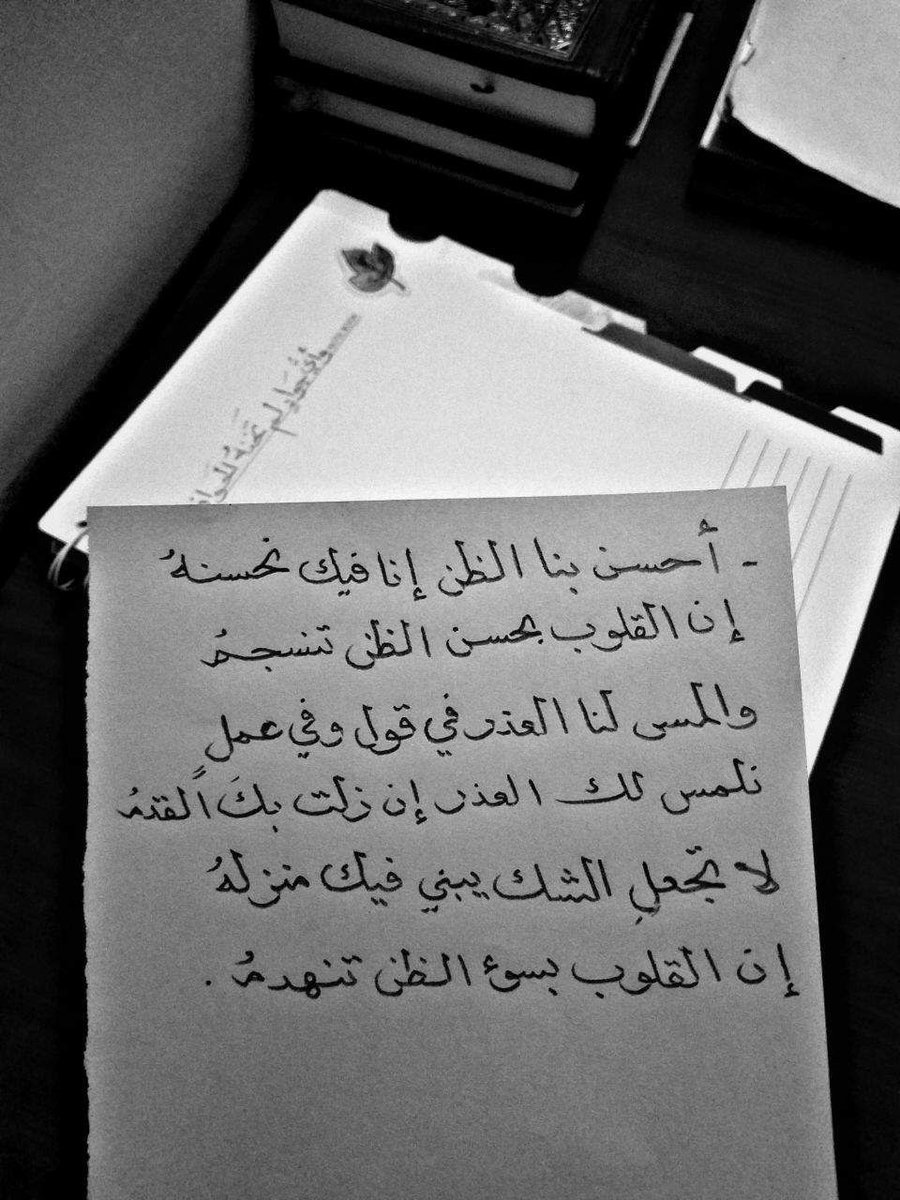 وأيُّ جِدارٍ لم
- أحسن بنا الظن إنا فيك نحسنهُ
إن القلوب بحسن الظن تنسجمُ
والمس لنا العذر في قول وفي عملٍ
نلمس لك العذر إن زلت بكَ القدمُ
لا تجعلِ الشك يبني فيك منزلهُ
إن القلوب بسوء الظن تنهدمُ .